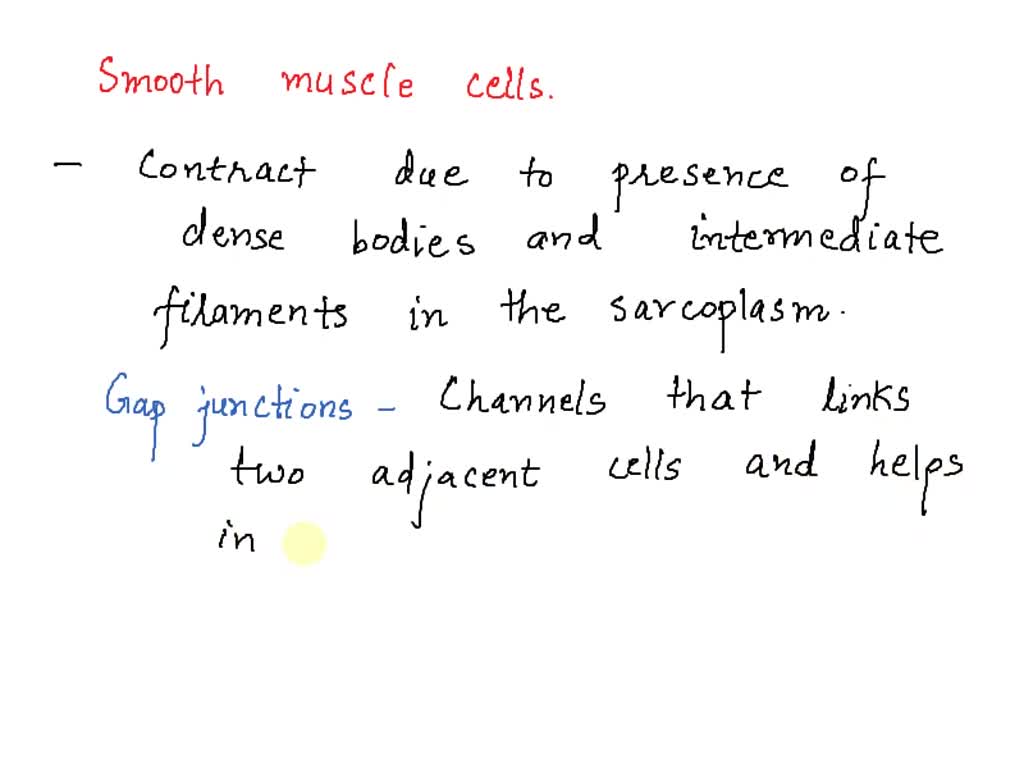 Smooth muscle cells.
- Contract due to presence of
dense bodies and intermediate
filaments in the sarcoplasm.
Gap junctions - Channels that links
two adjacent cells and helps
in